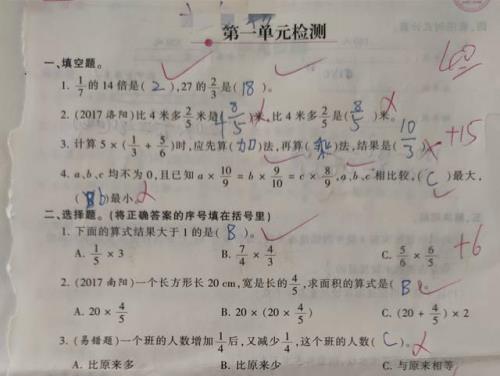 第一单元检测
100
一、填空题。
1. 1/7的14倍是(2),27的2/3是(18)。
2. (2017 洛阳)比4米多2/5米是( 8/5)米,比4米多2/5是(8/5)米。
3. 计算5×(1/3+5/6)时,应先算(加)法,再算(乘)法,结果是(10/3)。 +15
4. a、b、c均不为0,且已知a×10/9=b×9/10=c×8/9,a、b、c相比较,(c)最大,
(b)最小。
二、选择题。(将正确答案的序号填在括号里)
1. 下面的算式结果大于1的是(B)。
A. 1/5×3 B. 7/4×4/3 C. 5/6×6/5 +6
2. (2017 南阳)一个长方形长20 cm,宽是长的4/5,求面积的算式是(B)
A. 20×4/5 B. 20×(20×4/5) C. (20+4/5)×2
3. (易错题)一个班的人数增加1/4后,又减少1/4,这个班的人数(C)。
A. 比原来多 B. 比原来少 C. 与原来相等